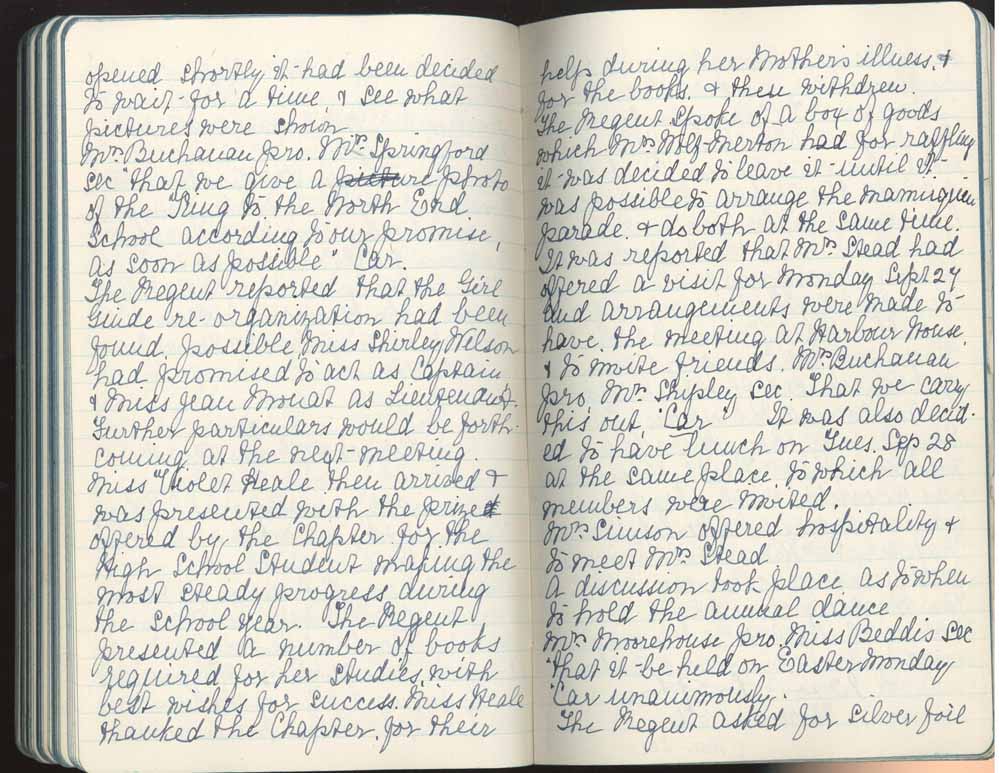 opened shortly it had been decided
to wait for a time, & see what
pictures were shown
Mrs. Buchanan pro. Mrs. Springford
Sec "that we give a picture photo
of the "King to the North End
School according to our promise,
as soon as possible" Car.
The Regent reported that the Girl
Guide re-organization had been
found possible Miss Shirley Wilson
had promised to act as Captain
& Miss Jean Mouat as Lieutenant.
Further particulars would be forth-
coming at the next meeting.
Miss Violet Heale then arrived &
was presented with the prize
offered by the Chapter for the
High School Student making the
most steady progress during
the school year. The Regent
presented a number of books
required for her studies, with
best wishes for success. Miss Heale
thanked the Chapter, for their
help during her Mother's illness, &
for the books, & then withdrew.
The Regent spoke of a box of goods
which Mrs. Wolf-Merton had for raffling
it was decided to leave it until it
was possible to arrange the maniquin
parade. & do both at the same time.
It was reported that Mrs. Stead had
offered a visit for Monday Sept 27
and arrangements were made to
have. the meeting at Harbour House,
& to invite friends. Mrs. Buchanan
pro Mrs. Shipley sec. "That we carry
this out, "Car" It was also decid-
ed to have lunch on Tues. Sep 28
at the same place, to which all
members were invited.
Mrs. Simson offered hospitality &
to meet Mrs. Stead
A discussion took place as to when
to hold the annual dance
Mrs. Moorehouse pro. Miss Beddis sec
"that it be held on Easter Monday
"Car unanimously.
The Regent asked for silver foil